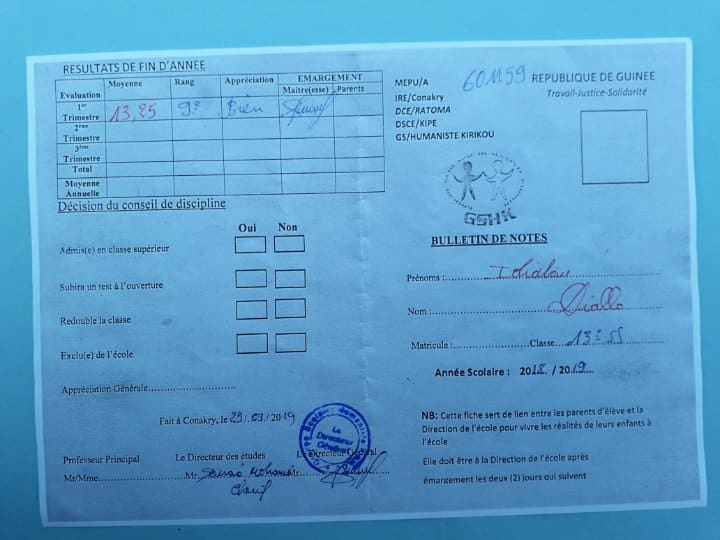 RESULTATS DE FIN D'ANNEE
Evaluation Moyenne Rang Appréciation EMARGEMENT
Maitre(esse) Parents
1er Trimestre 13,25 9e Bien
2ème Trimestre
3ème Trimestre
Total
Moyenne Annuelle
Décision du conseil de discipline
Oui Non
Admis(e) en classe supérieur
Subira un test à l'ouverture
Redouble la classe
Exclu(e) de l'école
Appréciation Générale
Fait à Conakry, le 29/.03/2019
Professeur Principal Le Directeur des études Le Directeur Général
Mr/Mme Mr.
Le Directeur Général
MEPU/A
IRE/Conakry
DCE/RATOMA
DSCE/KIPE
GS/HUMANISTE KIRIKOU
601199
REPUBLIQUE DE GUINEE
Travail-Justice-Solidarité
GSHK
BULLETIN DE NOTES
Prénoms :
Nom : Diallo
Matricule : Classe 13e SS
Année Scolaire : 2018 / 2019
NB: Cette fiche sert de lien entre les parents d'élève et la
Direction de l'école pour vivre les réalités de leurs enfants à
l'école
Elle doit être à la Direction de l'école après
émargement les deux (2) jours qui suivent